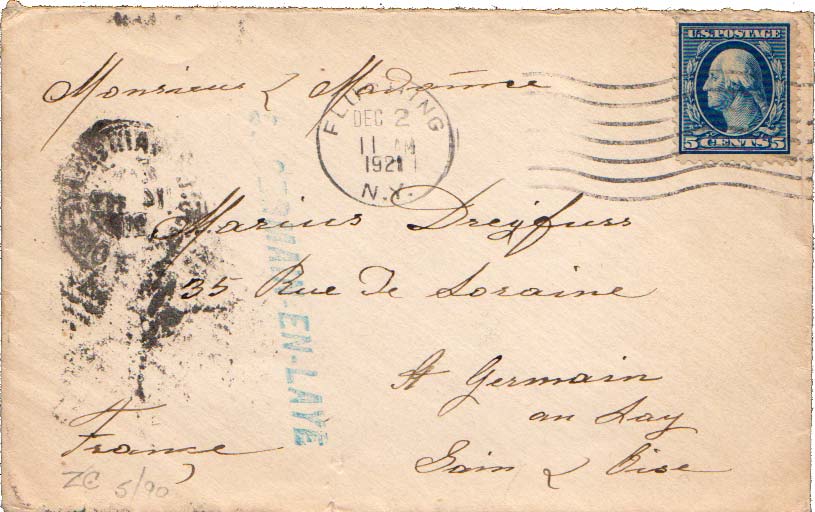 U.S. POSTAGE
5 CENTS 5
FLUSHING
DEC 2
11 AM
1921
N.Y.
Monsieur & Madame
Marius Dreyfuss
35 Rue De Loraine
St Germain
an Lay
Sain & Oise
France
GERMAIN-EN-LAYE
ZC 5/90